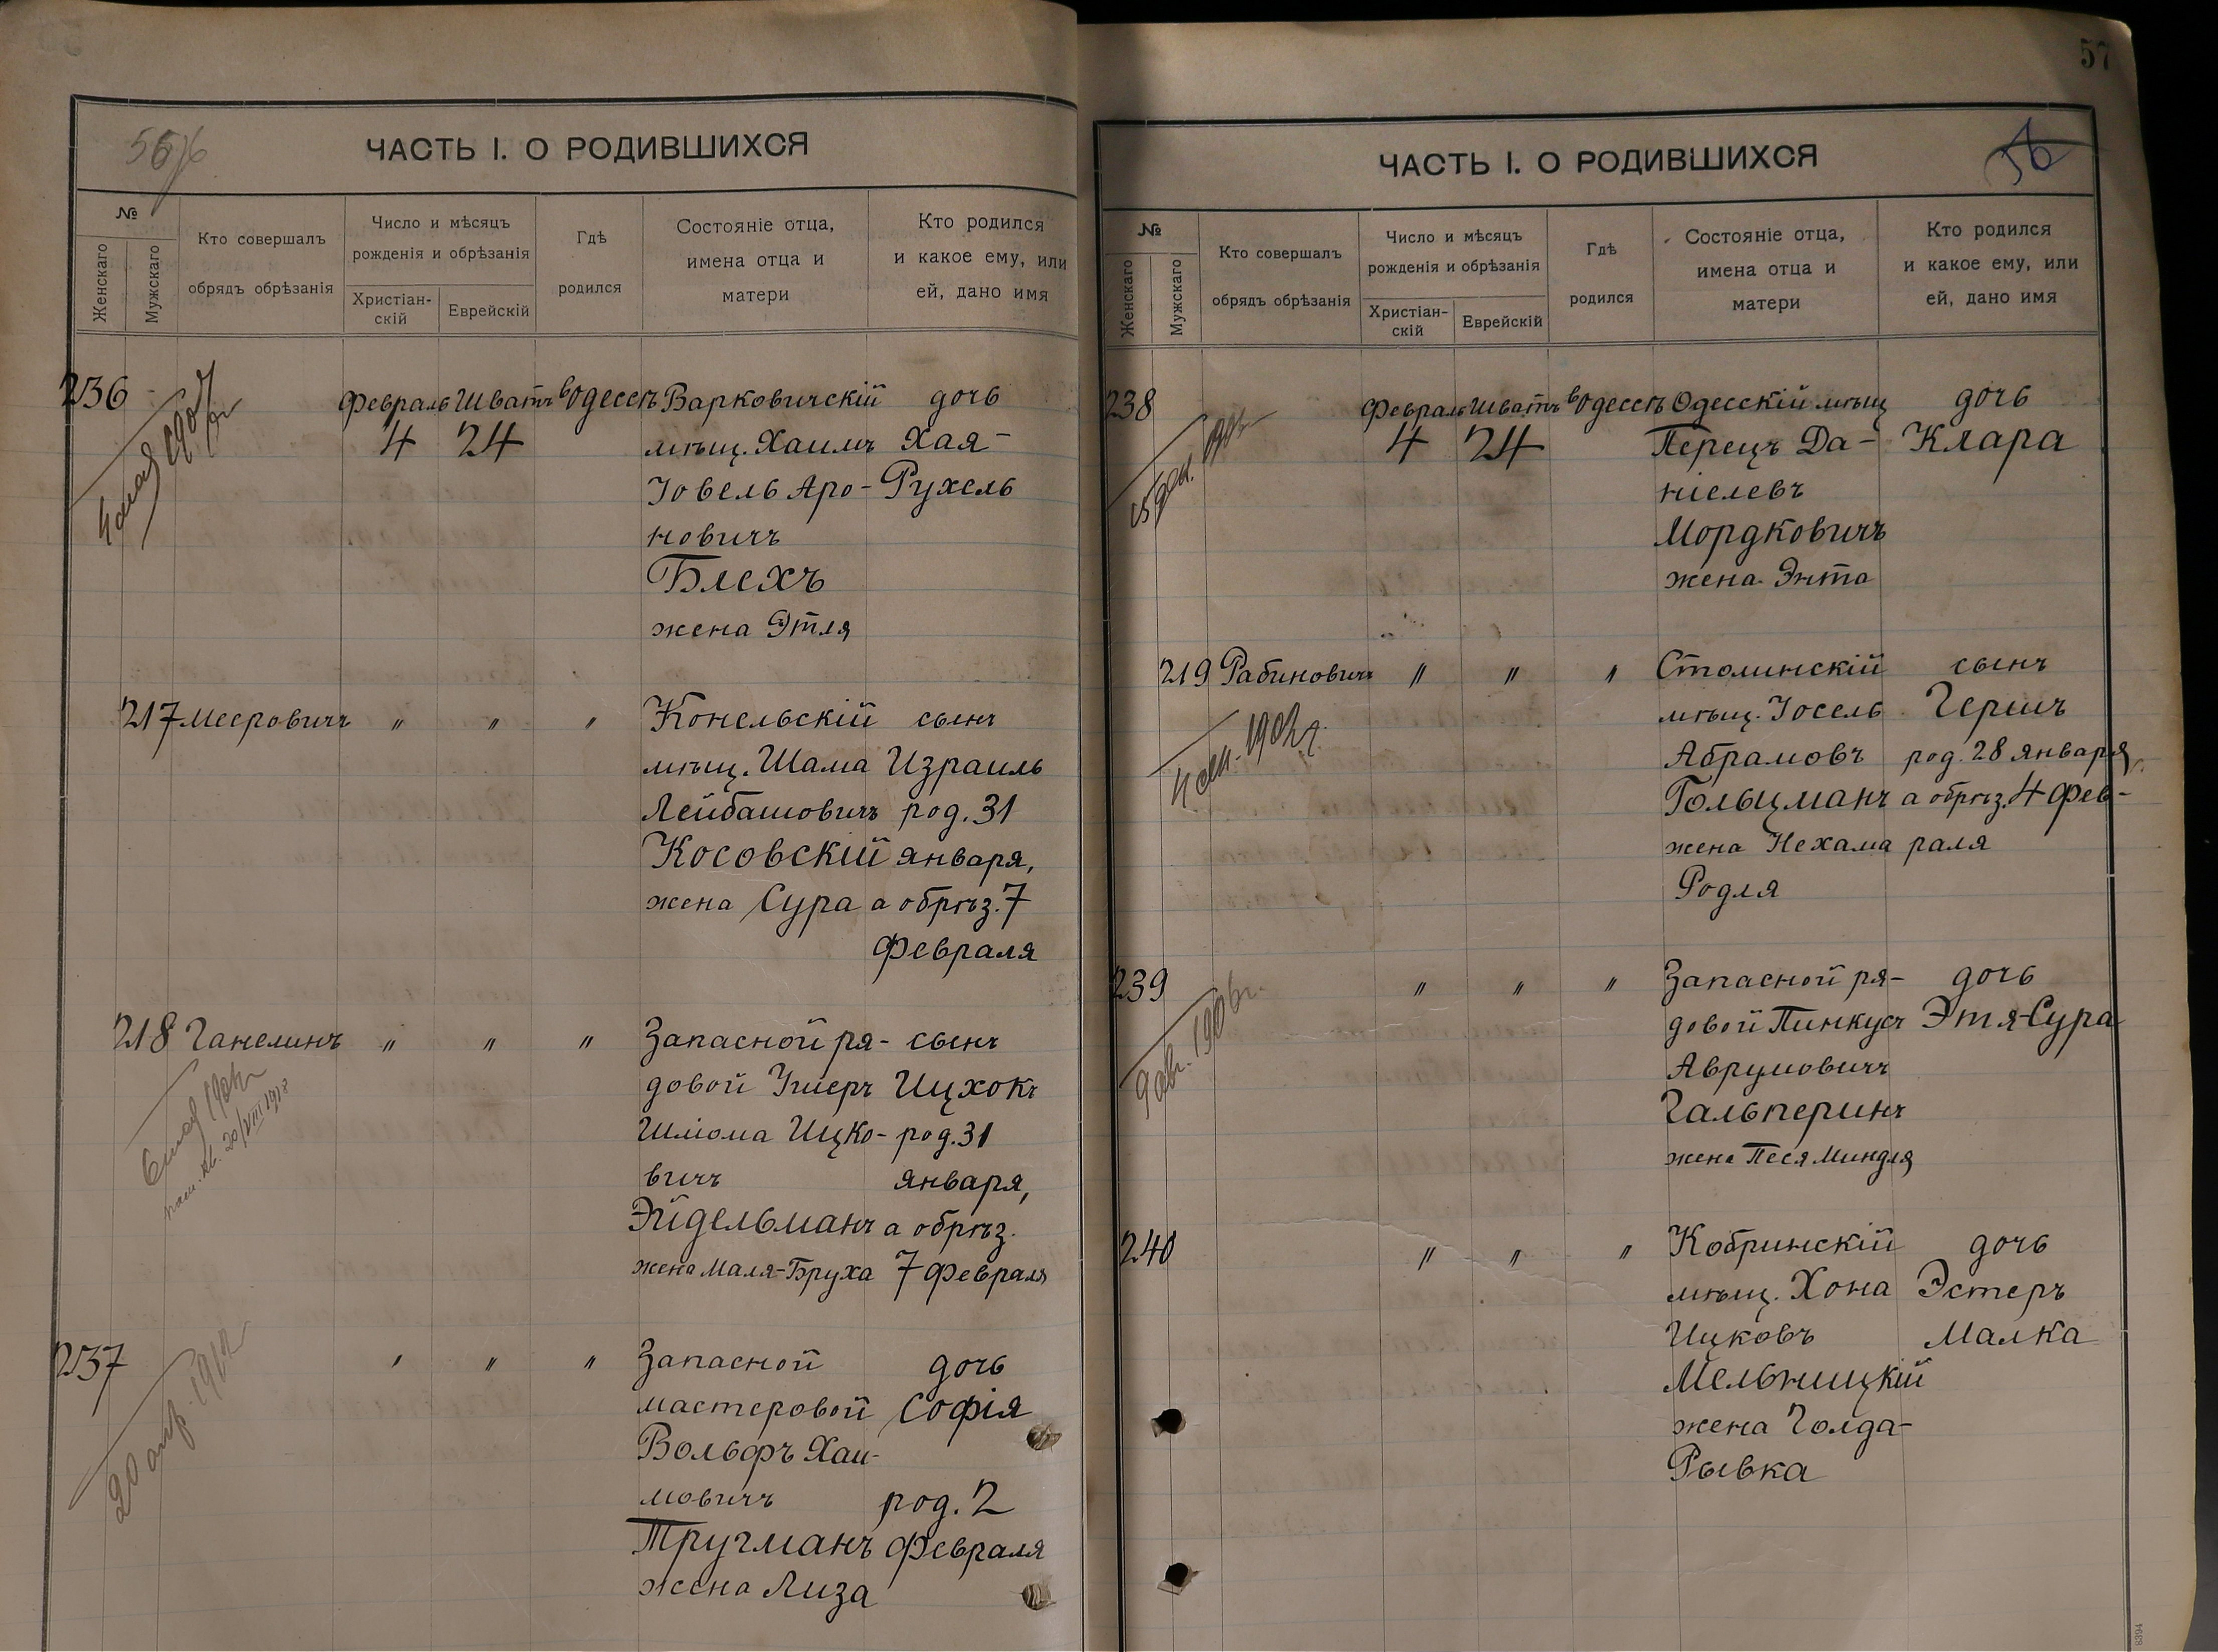 ЧАСТЬ I. О РОДИВШИХСЯ
№
Женскаго
Мужскаго
Кто совершалъ
обрядъ обрѣзанія
Число и мѣсяцъ
рожденія и обрѣзанія
Христіан-
скій
Еврейскій
Гдѣ
родился
Состояніе отца,
имена отца и
матери
Кто родился
и какое ему, или
ей, дано имя
236 Февраль Шватъ въ Одессѣ Варковичскій дочь
4 24 мѣщ. Хаимъ Хая-
Іовель Аро- Рухель
новичъ
Блехъ
жена Этля
217 Мееровичъ " " " Конельскій сынъ
мѣщ. Шама Израиль
Лейбашовичъ род. 31
Косовскій января,
жена Сура а обрѣз. 7
февраля
218 Ганелинъ " " " Запасной ря- сынъ
довой Ушеръ Ицхокъ
Шліома Ицко- род. 31
вичъ января,
Эйдельманъ а обрѣз.
жена Маля-Бруха 7 февраля
237 " " " Запасной дочь
мастеровой Софія
Вольфъ Хаи-
мовичъ род. 2
Тругманъ февраля
жена Лиза
57
56
ЧАСТЬ I. О РОДИВШИХСЯ
№
Женскаго
Мужскаго
Кто совершалъ
обрядъ обрѣзанія
Число и мѣсяцъ
рожденія и обрѣзанія
Христіан-
скій
Еврейскій
Гдѣ
родился
Состояніе отца,
имена отца и
матери
Кто родился
и какое ему, или
ей, дано имя
238 Февраль Шватъ въ Одессѣ Одесскій мѣщ дочь
4 24 Перецъ Да- Клара
ніелевъ
Мордковичъ
жена Энта
219 Рабиновичъ " " " Столинскій сынъ
мѣщ. Іосель Гершъ
Абрамовъ род. 28 января,
Гольцманъ а обрѣз. 4 фев-
жена Нехама раля
Родля
239 " " " Запасной ря- дочь
довой Пинкусъ Этя-Сура
Аврумовичъ
Гальперинъ
жена Песя Миндля
240 " " " Кобринскій дочь
мѣщ. Хона Эстеръ
Ицковъ Малка
Мельницкій
жена Голда-
Рывка
8394